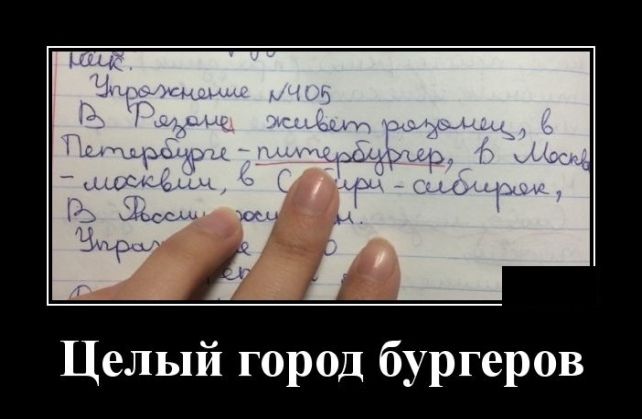 Упражнение №405
В Рязане живёт рязанец, в
Петербурге - питербургер, в Москве
- москвич, в Сибири - сибиряк,
В России
Целый город бургеров